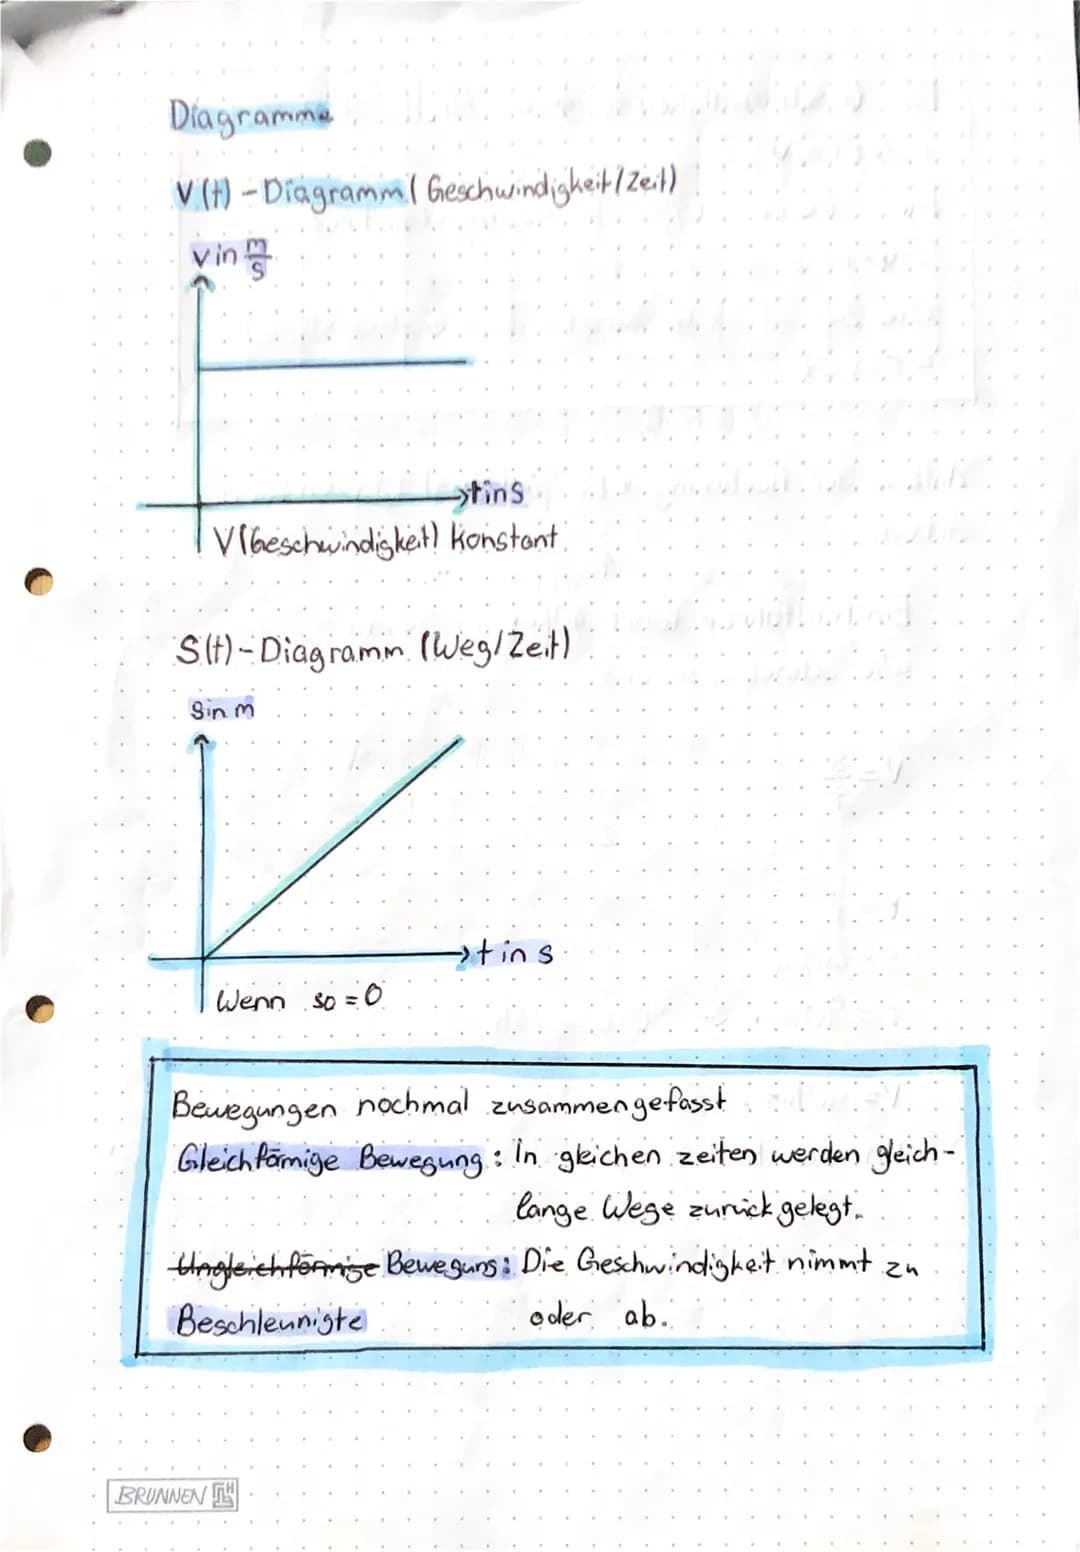 Diagramme
V(t) - Diagramm ( Geschwindigkeit / Zeit)
v in m/s
t in s
V (Geschwindigkeit) konstant
S(t) - Diagramm (Weg/Zeit)
S in m
t in s
Wenn so = 0
Bewegungen nochmal zusammengefasst
Gleichförmige Bewegung : In gleichen zeiten werden gleich-
lange Wege zurückgelegt.
Ungleichförmige Bewegung: Die Geschwindigkeit nimmt zu
Beschleunigte oder ab.
BRUNNEN